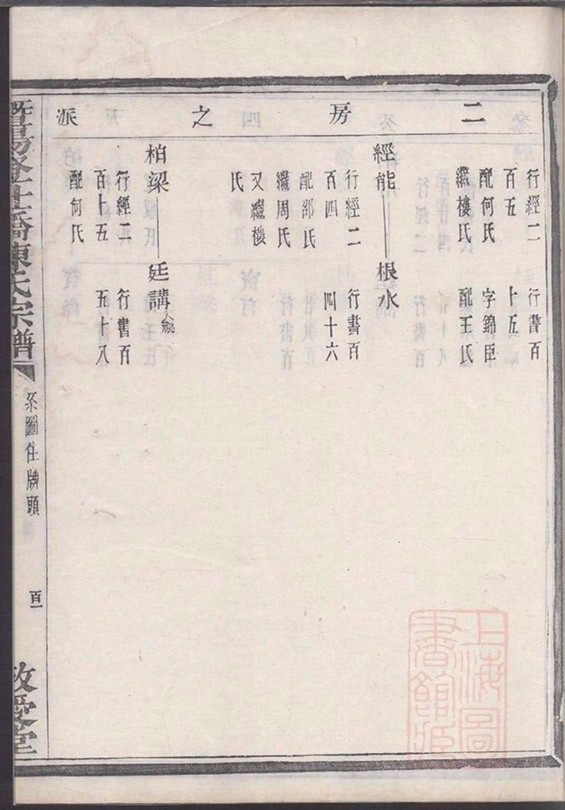 二房之派
行經二
百五
配何氏
繼樓氏
行書百
十五
字錦臣
配王氏
經能
根水
行經二
百四
配郭氏
繼周氏
又繼樓
氏
行書百
四十六
柏梁
廷講
行經二
百十五
配何氏
行書百
五十八
暨陽
橋陳氏宗譜
系圖住牌頭
百一
敬愛堂
上海圖書館藏